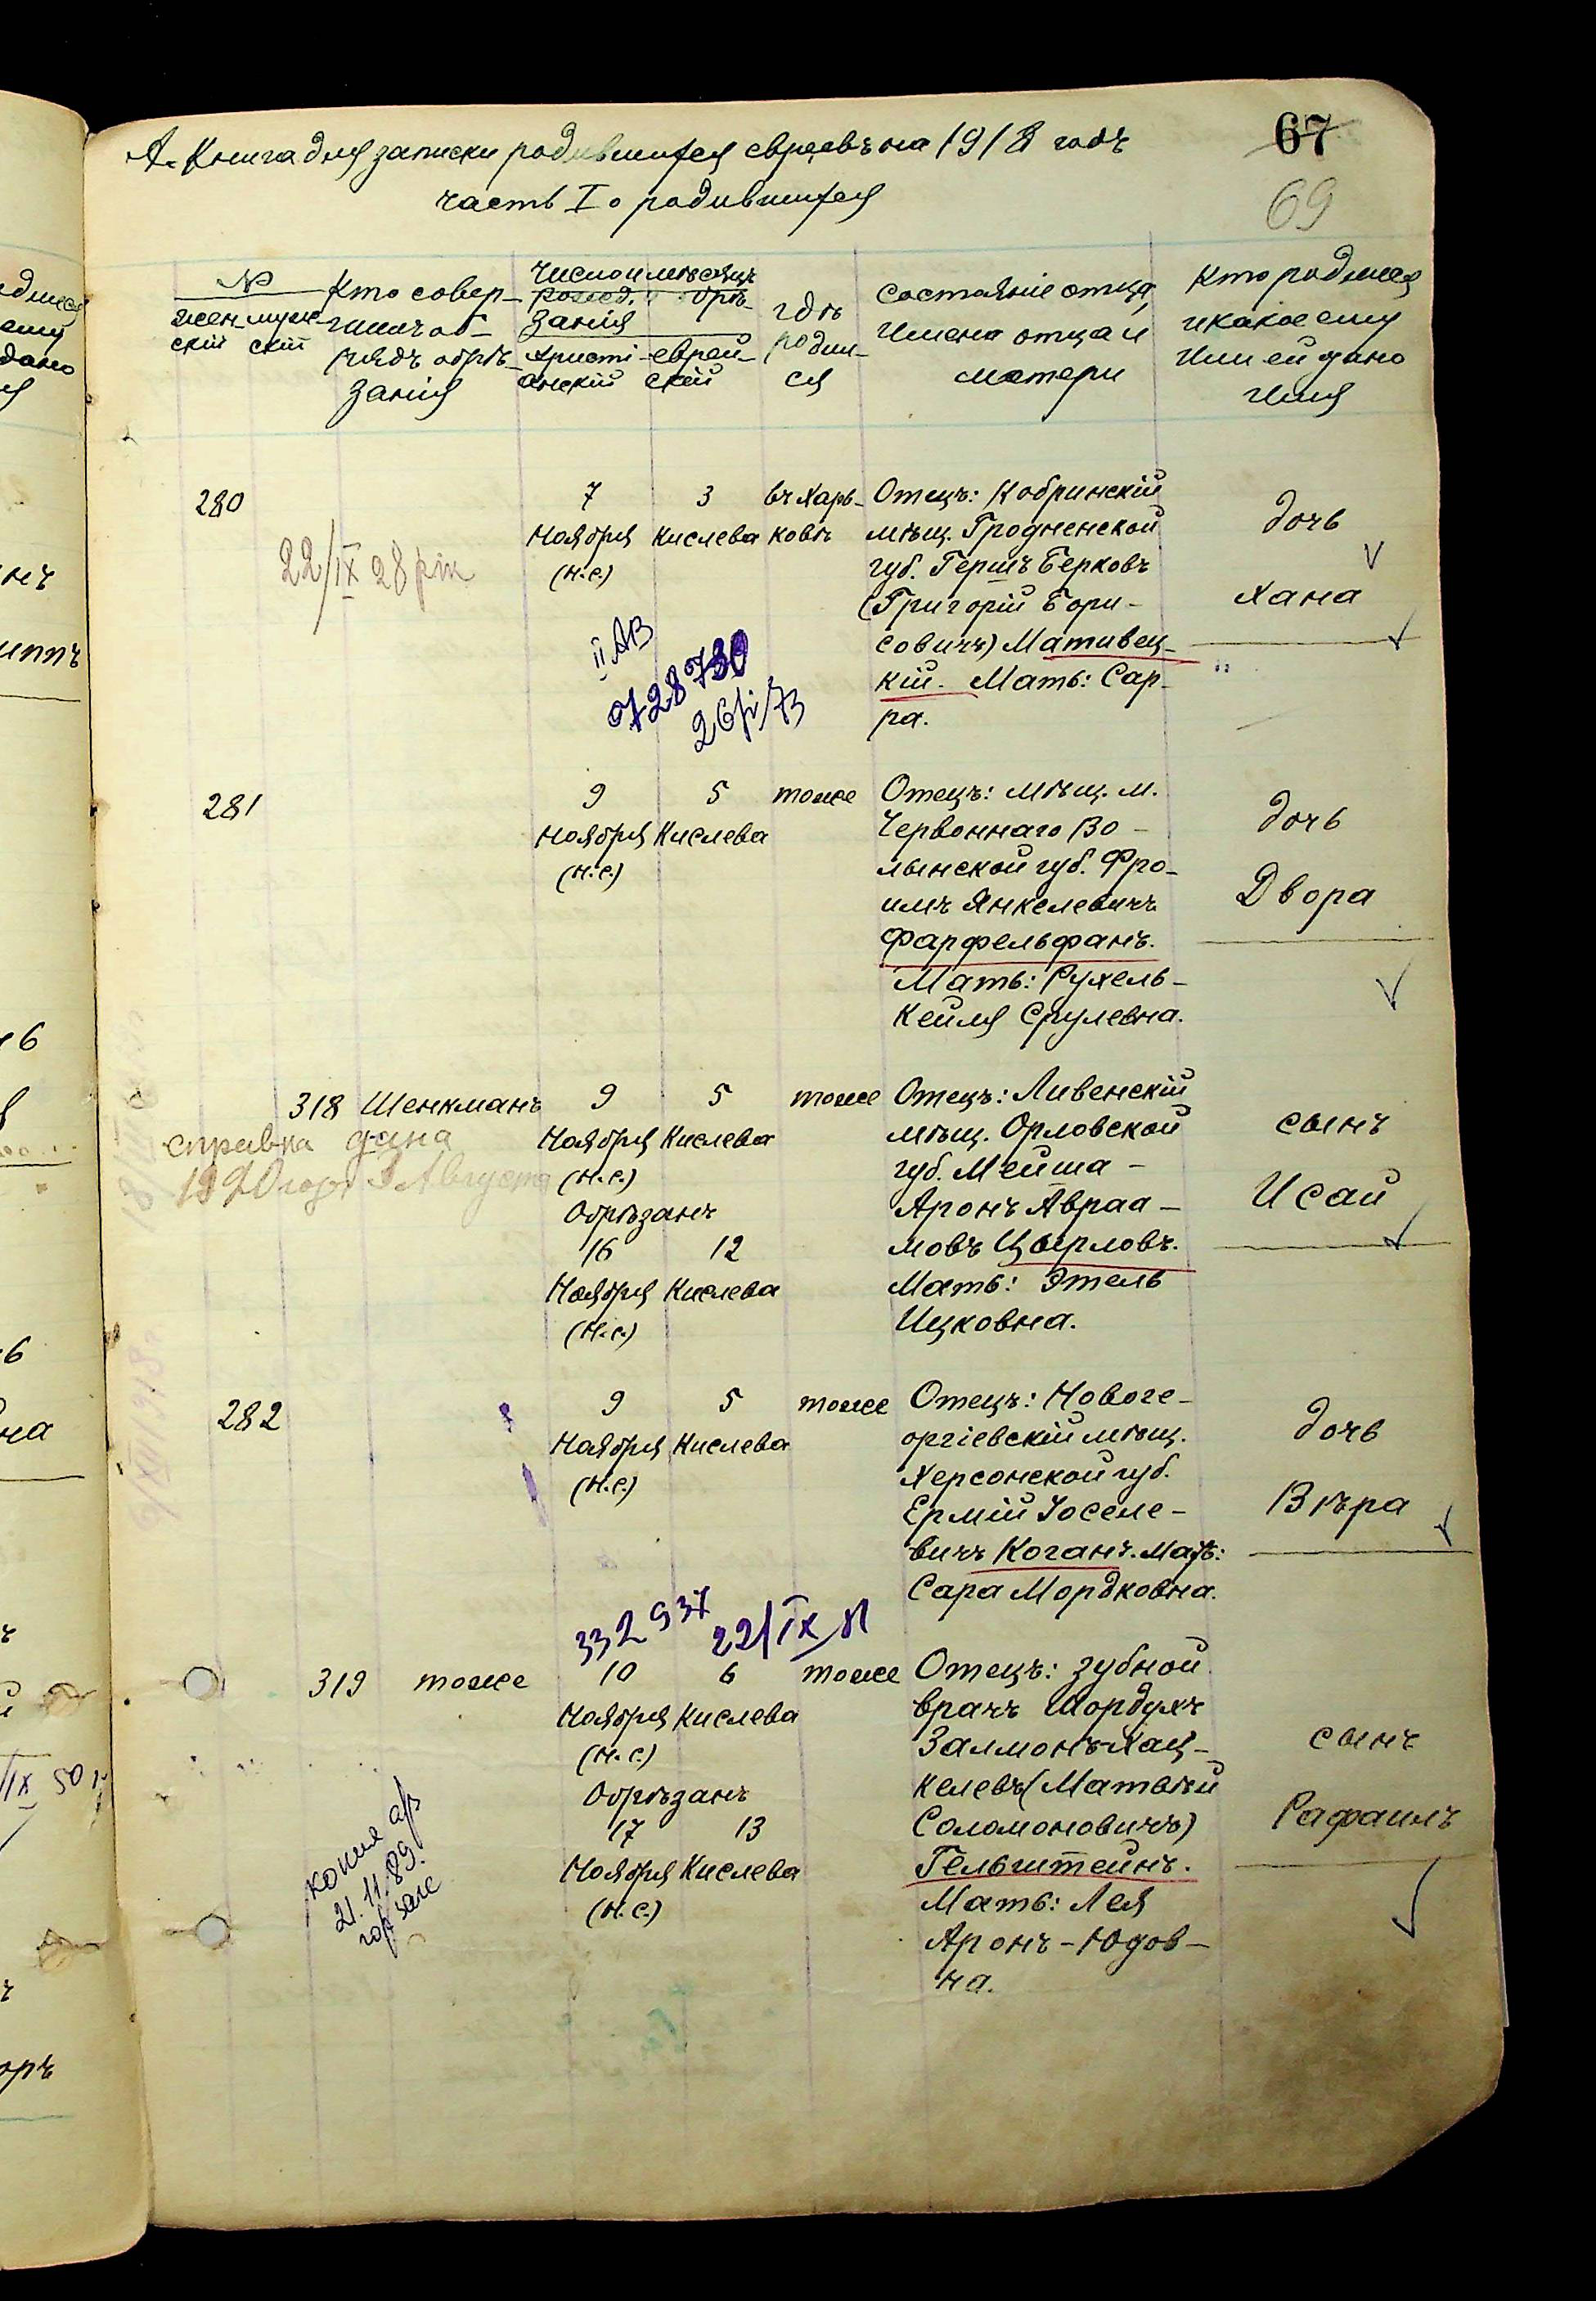 А. Книга для записки родившихся евреевъ на 1918 годъ
67
часть I о родившихся
69
№
жен-
скій
муж-
скій
Кто совер-
шилъ об-
рядъ обрѣ-
занія
Число и мѣсяцъ
рожд. и обрѣ-
занія
христі-
анскій
еврей-
скій
гдѣ
родил-
ся
Состояніе отца,
имена отца и
матери
Кто родился
и какое ему
или ей дано
имя
280
22/IX 28 рік
7
Ноября
(н.с.)
3
Кислева
въ Харь-
ковѣ
Отецъ: Кобринскій
мѣщ. Гродненской
губ. Гершъ Берковъ
(Григорій Бори-
совичъ) Мативец-
кій. Мать: Сар-
ра.
дочь
Хана
II АВ
728730
281
9
Ноября
(н.с.)
5
Кислева
тоже
Отецъ: мѣщ. м.
Червоннаго Во-
лынской губ. Фро-
имъ Янкелевичъ
Фарфельфанъ.
Мать: Рухель-
Кейля Срулевна.
дочь
Двора
318
Шенкманъ
справка дана
1920 года 3 Августа
9
Ноября
(н.с.)
5
Кислева
Обрѣзанъ
16
Ноября
(н.с.)
12
Кислева
тоже
Отецъ: Ливенскій
мѣщ. Орловской
губ. Мейша-
Аронъ Авраа-
мовъ Цырловъ.
Мать: Этель
Ицковна.
сынъ
Исай
282
9
Ноября
(н.с.)
5
Кислева
тоже
Отецъ: Новоге-
оргіевскій мѣщ.
Херсонской губ.
Ермій Іоселе-
вичъ Коганъ. Мать:
Сара Мордковна.
дочь
Вѣра
332937
22/IX
319
тоже
10
Ноября
(н.с.)
6
Кислева
Обрѣзанъ
17
Ноября
(н.с.)
13
Кислева
тоже
Отецъ: зубной
врачъ Мордухъ
Залмонъ-Хац-
келевъ (Матвѣй
Соломоновичъ)
Гельштейнъ.
Мать: Лея
Аронъ-Юдов-
на.
сынъ
Рафаилъ
копия а/з
21.11.89.
гор загс